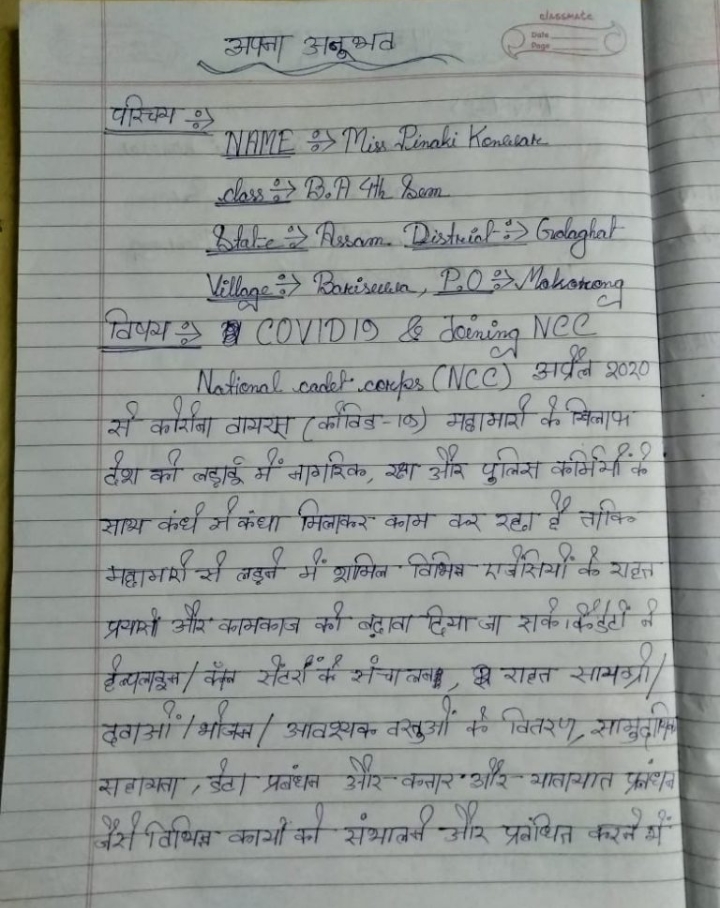 classmate
Date
Page
अपना अनुभव
परिचय :->
NAME :-> Miss Pinaki Konwar
class :-> B.A 4th Sem
State :-> Assam District :-> Golaghat
Village :-> P.O :->
विषय :-> COVID19 & Joining NCC
National cadet corps (NCC) अप्रैल 2020
से कोरोना वायरस (कोविड-19) महामारी के खिलाफ
देश की लड़ाई में नागरिक, रक्षा और पुलिस कर्मियों के
साथ कंधे से कंधा मिलाकर काम कर रहा है ताकि
महामारी से लड़ने में शामिल विभिन्न एजेंसियों के राहत
प्रयासों और कामकाज को बढ़ावा दिया जा सके। कैडेटों ने
हेल्पलाइन/ कॉल सेंटरों के संचालन, राहत सामग्री/
दवाओं/भोजन/ आवश्यक वस्तुओं के वितरण, सामुदायिक
सहायता, डेटा प्रबंधन और कतार और यातायात प्रबंधन
जैसे विभिन्न कार्यों को संभालने और प्रबंधित करने में